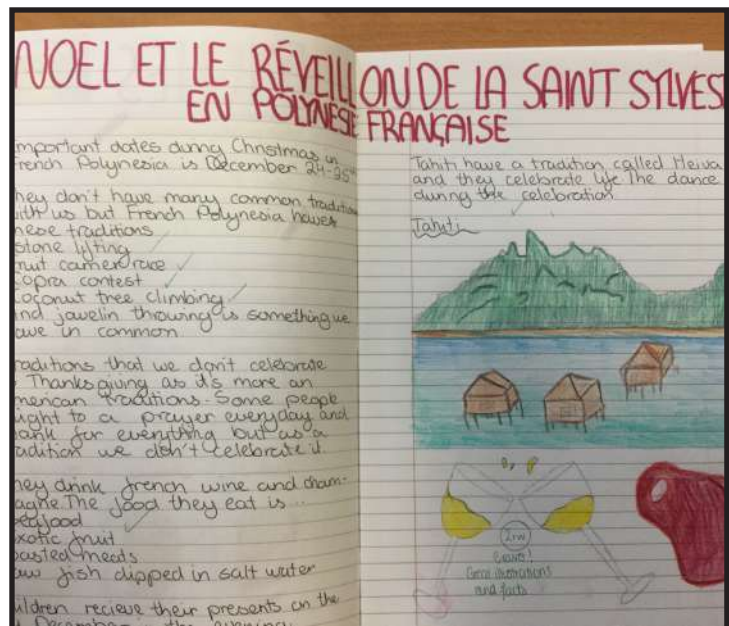 NOEL ET LE RÉVEILLON DE LA SAINT SYLVES
EN POLYNÉSIE FRANÇAISE
mportant dates during Christmas in
French Polynesia is December 24-25th
hey don't have many common tradition
with us but French Polynesia haves
hese traditions
stone lifting
ruit carrier race
copra contest
coconut tree climbing
nd javelin throwing is something we
ave in common
raditions that we don't celebrate
Thanksgiving as it's more an
merican traditions. Some people
ight to a prayer everyday and
ank for everything but as a
adition we don't celebrate it.
hey drink french wine and cham-
agne. The food they eat is...
eafood
xotic fruit
oasted meats
aw fish dipped in salt water
ildren recieve their presents on the
December in the evening.
Tahiti have a tradition called Heiva
and they celebrate life the dance
during the celebration
Tahiti
2rw
Bravo!
Great illustrations
and facts